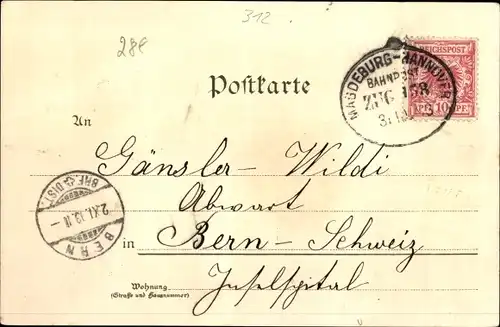 312
28€
REICHSPOST
MAGDEBURG-HANNOVER
BAHNPOST
ZUG 158
10 PF
Postkarte
An
Gänsler-Wildi
Abwart
in Bern-Schweiz
Inselspital
BRF. DIST.
2.XI.
BERN
Wohnung
(Straße und Hausnummer)